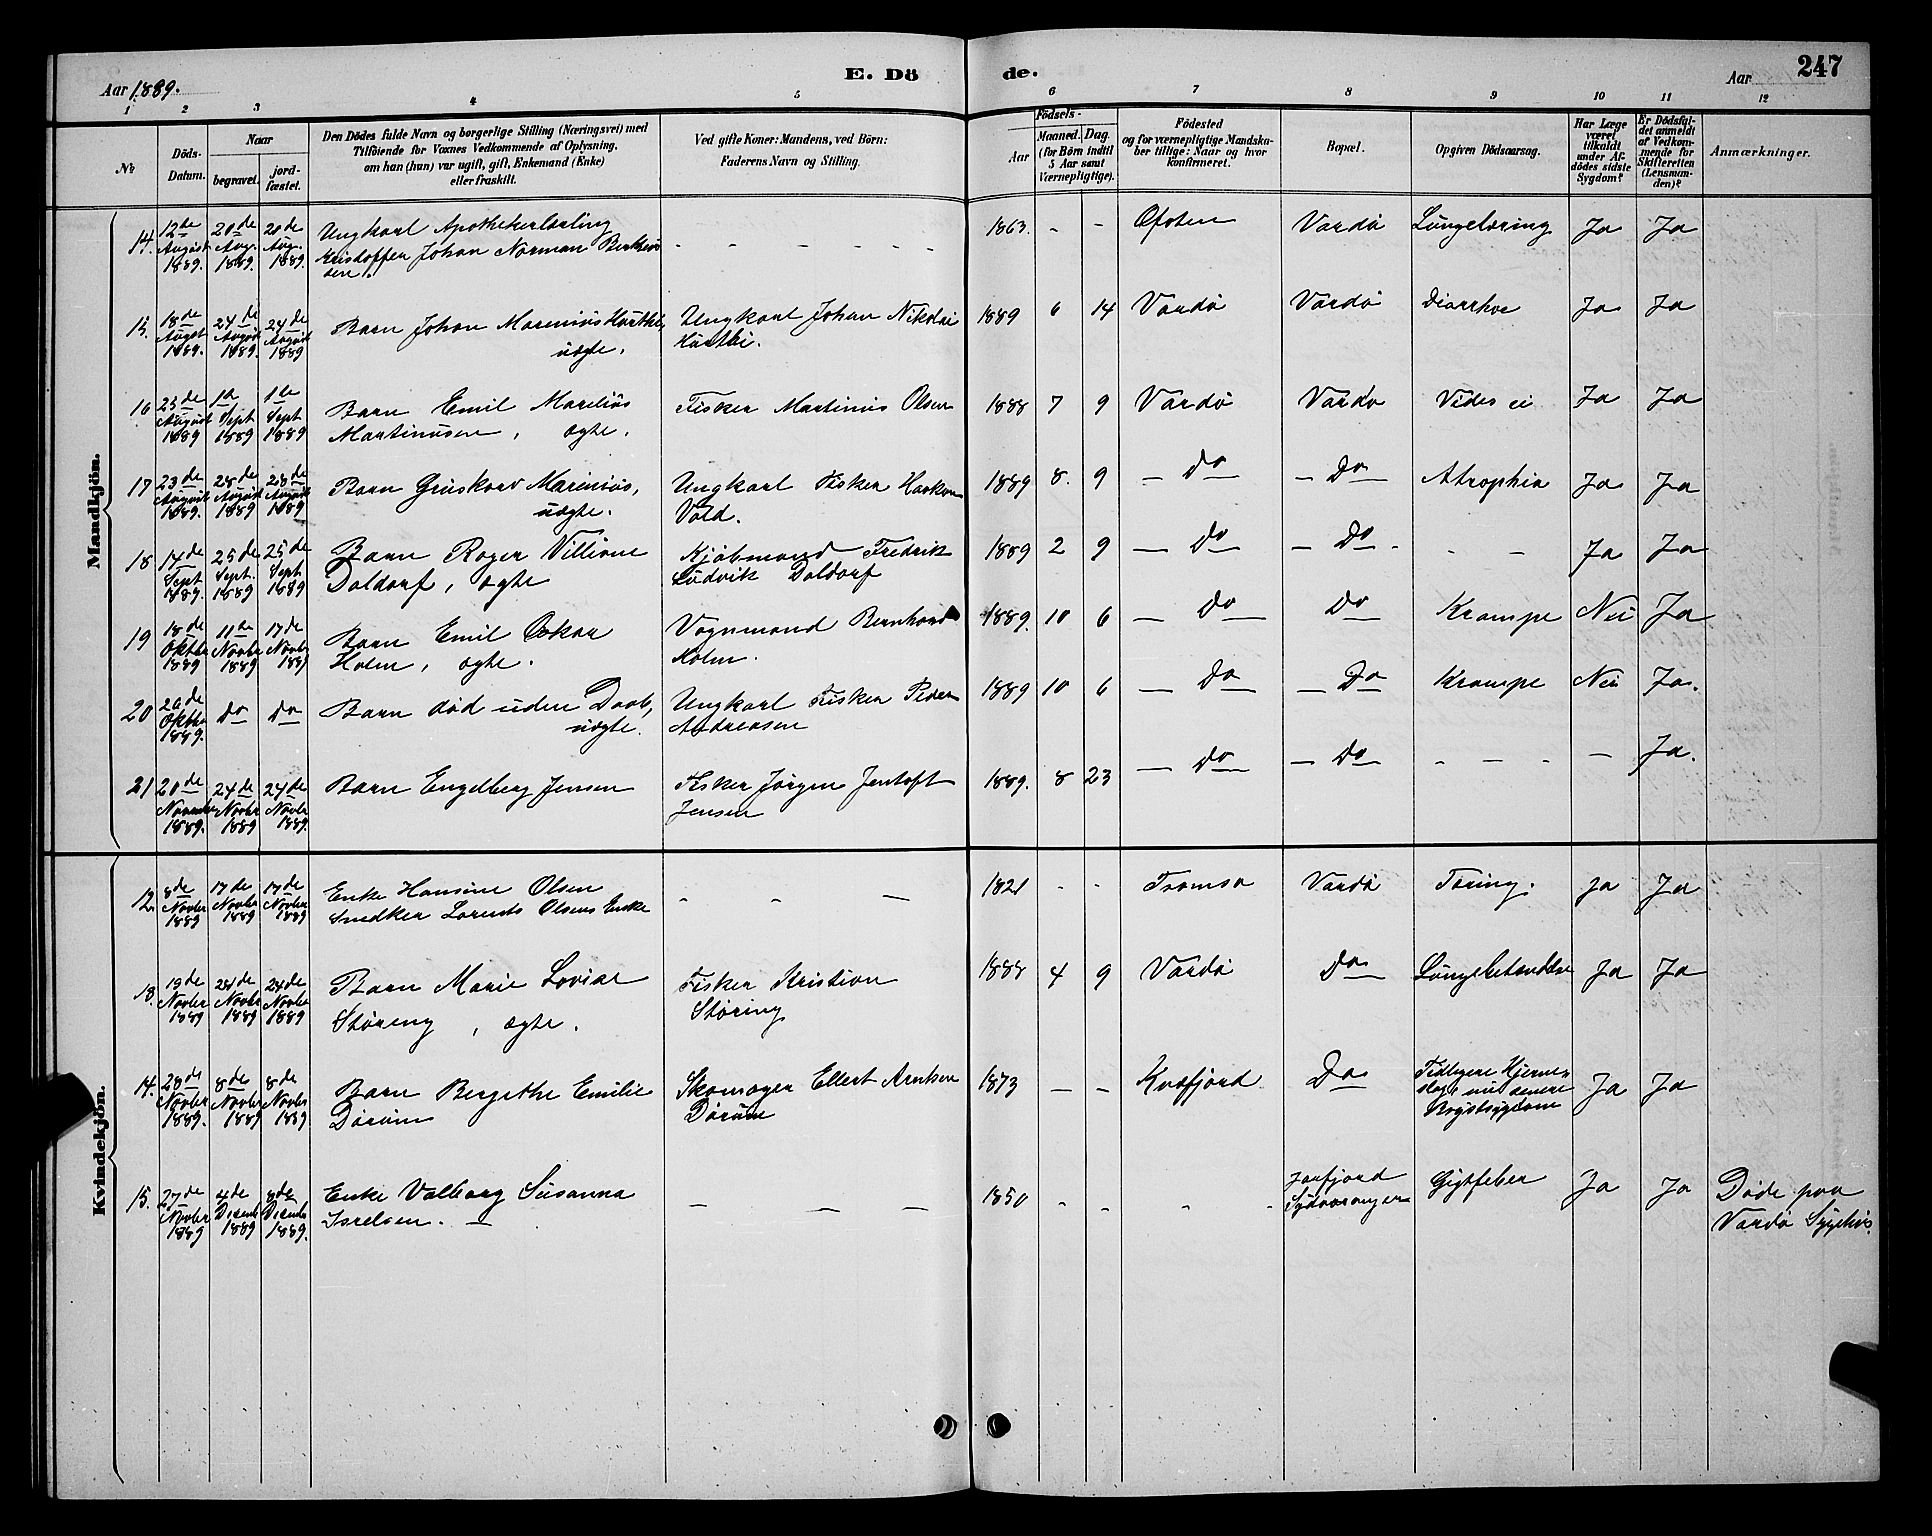 Aar 1889.
E. Dö
de.
Aar
247
1 2 3 4 5 6 7 8 9 10 11 12
No
Döds-
Datum.
Naar
begravet.
jord-
fæstet.
Den Dödes fulde Navn og borgerlige Stilling (Næringsvei) med
Tilföiende for Voxnes Vedkommende af Oplysning,
om han (hun) var ugift, gift, Enkemand (Enke)
eller fraskilt.
Ved gifte Koner: Mandens, ved Börn:
Faderens Navn og Stilling.
Födsels-
Aar
Maaned. Dag.
(for Börn indtil
5 Aar samt
Værnepligtige).
Födested
og for værnepligtige Mandska-
ber tillige: Naar og hvor
konfirmeret.
Bopæl.
Opgiven Dödsaarsag.
Har Læge
været
tilkaldt
under Af-
dödes sidste
Sygdom?
Er Dödsfal-
det anmeldt
af Vedkom-
mende for
Skifteretten
(Lensman-
den)?
Anmærkninger.
Mandkjön.
14. 12te August 1889. 20de Aug. 1889. 20de Aug. 1889. Ungkarl Apothekerlærling
Kristoffer Johan Norman
- - - - - - 1863. - - Ofoten Vardö Ja Ja
15. 18de August 1889. 24de August 1889. 24de August 1889 Barn Johan Marenius
uægte. Ungkarl Johan Nikolai
1889 6 14 Vardö Vardö Diarrhoe Ja Ja
16 23de August 1889 1te Sept 1889 1te Sept 1889 Barn Emil Marelius
Martinusen, ægte. Fisker Martinus Olsen 1888 7 9 Vardö Vardö Vides ei Ja Ja
17 23de August 1889. 28de August 1889 28de August 1889 Barn Marenius,
uægte. Ungkarl Fisker Haakon
Vold. 1889 8. 9 — Do — Do Atrophia Ja Ja
18 17de Sept 1889. 25de Sept. 1889 25de Sept 1889 Barn Roger
Doldorf, ægte Kjøbmand Fredrik
Ludvik Doldorf 1889 2 9 — Do — Do - - - Ja Ja
19 18de Oktbr 1889 17de Novbr 1889 17de Novbr 1889 Barn Emil Oskar
Holm, ægte. Vognmand Bernhard
Holm. 1889. 10 6 — Do Do Krampe Nei Ja
20 26de Oktbr 1889. Do Do Barn død uden Daab,
uægte. Ungkarl Fisker Peder
Andreasen 1889 10 6 — Do — Do Krampe Nei Ja.
21 20de November 1889. 24de Novbr 1889 24de Novbr 1889. Barn Engelberg Jensen Fisker Jørgen Jentoft
Jensen 1889. 8 23 — Do — Do - - - - — Ja.
Kvindekjön.
12 8de Novbr 1889 17de Novbr 1889 17de Novbr 1889 Enke Hansine Olsen
Snedker Lorents Olsens Enke - - — 1821 - - Tromsø Vardö Tæring. Ja Ja
13. 19de Novbr 1889 24de Novbr 1889 24de Novbr 1889 Barn Marie Lovise
Støreng, ægte. Fisker Kristian
Støring 1888 4 9 Vardö Do Lungebetændelse Ja Ja
14. 28de Novbr 1889. 8de Novbr 1889 8de Novbr 1889 Barn Bergethe Emilie
Dørum Skomager Ellert Arntsen
Dørum 1873 — - Kvæfjord Do Tidligere Hjerne-
slag senere
Brystsygdom Ja Ja
15. 27de Novbr 1889 4de Decembr 1889 8de Decembr 1889. Enke Valborg Susanna
Isrelsen. — — — — 1850 - - - - Jarfjord
Sydvaranger Gigtfeber Ja Ja Døde paa
Vardö Sygehus.